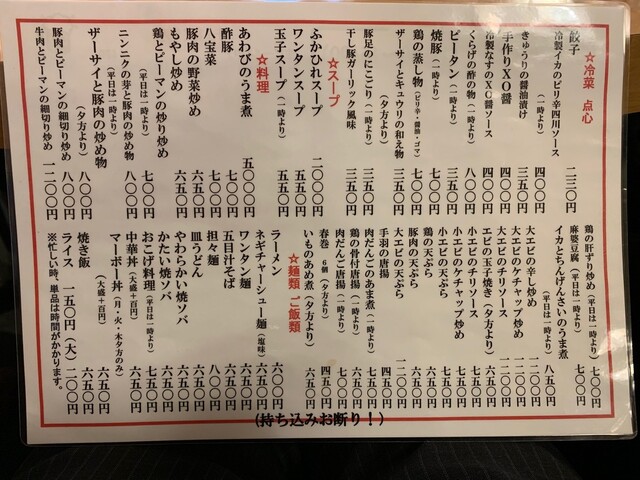 ☆冷菜 点心
餃子 二三〇円
冷製イカのピリ辛四川ソース
(一時より) 四〇〇円
きゅうりの醤油漬け 三五〇円
手作りXO醤 四〇〇円
冷製なすのXO醤ソース 四〇〇円
くらげの酢の物(一時より) 八〇〇円
ピータン(一時より) 三五〇円
焼豚(一時より) 七〇〇円
鶏の蒸し物(ピリ辛・醤油・ゴマ) 七〇〇円
ザーサイとキュウリの和え物
(夕方より) 三五〇円
豚足のにこごり(一時より) 三五〇円
干し豚ガーリック風味 三五〇円
☆スープ
ふかひれスープ 二〇〇〇円
ワンタンスープ 五五〇円
玉子スープ(一時より) 五五〇円
☆料理
あわびのうま煮 五〇〇〇円
酢豚 七〇〇円
八宝菜 七〇〇円
豚肉の野菜炒め 六五〇円
もやし炒め 六五〇円
鶏とピーマンの炒り炒め
(平日は一時より) 七〇〇円
ニンニクの芽と豚肉の炒め物
(平日は一時より) 八〇〇円
ザーサイと豚肉の炒め物
(夕方より) 八〇〇円
豚肉とピーマンの細切り炒め 八〇〇円
牛肉とピーマンの細切り炒め 一二〇〇円
鶏の肝ずり炒め(平日は一時より) 七〇〇円
麻婆豆腐(平日は一時より) 七〇〇円
イカとちんげんさいのうま煮
(平日は一時より) 八五〇円
大エビの辛し炒め 一二〇〇円
大エビのケチャップ炒め 一二〇〇円
大エビのチリソース 一二〇〇円
エビの玉子焼き(夕方より) 六五〇円
小エビのチリソース 七五〇円
小エビのケチャップ炒め 七五〇円
小エビの天ぷら 七五〇円
鶏の天ぷら 六五〇円
豚肉の天ぷら 六五〇円
大エビの天ぷら 一二〇〇円
手羽の唐揚 四五〇円
肉だんごのあま煮(一時より) 七五〇円
鶏の骨付唐揚(一時より) 七〇〇円
肉だんご唐揚(一時より) 七〇〇円
春巻 6個(夕方より) 四五〇円
いものあめ煮(夕方より) 六五〇円
☆麺類 ご飯類
ラーメン 六〇〇円
ネギチャーシュー麺(塩味) 六五〇円
ワンタン麺 六五〇円
五目汁そば 六五〇円
担々麺 八〇〇円
皿うどん 六五〇円
やわらかい焼ソバ 六五〇円
かたい焼ソバ 六五〇円
おこげ料理(平日は一時より) 七五〇円
中華丼(大盛+百円) 六五〇円
マーボー丼(月・火・木夕方のみ)
(大盛+百円) 六五〇円
焼き飯 六五〇円
ライス 一五〇円 (大)二〇〇円
※忙しい時、単品は時間がかかります。
(持ち込みお断り！)